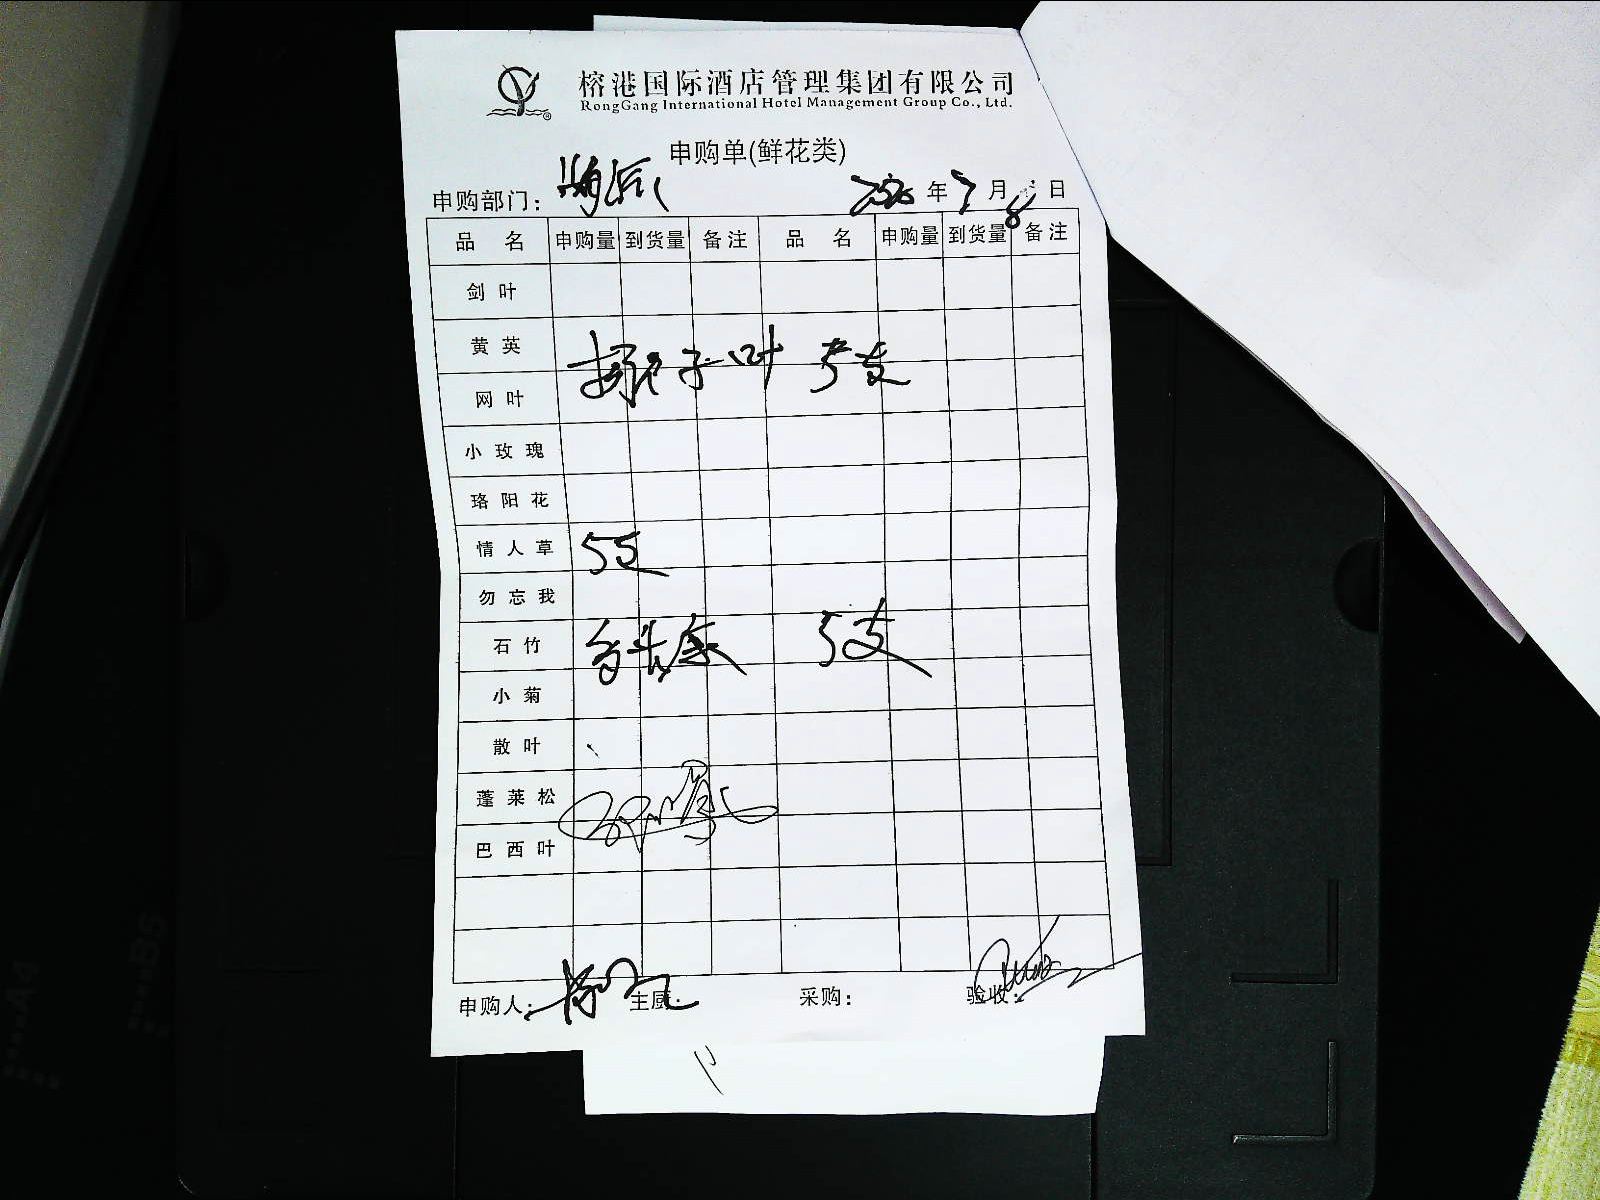 榕港国际酒店管理集团有限公司
RongGang International Hotel Management Group Co., Ltd.
申购单(鲜花类)
申购部门： 年 7 月 8 日
品 名 申购量 到货量 备注 品 名 申购量 到货量 备注
剑 叶
黄 英
椰子叶 5支
网 叶
小 玫 瑰
珞 阳 花
情 人 草 5支
勿 忘 我
石 竹 5支
小 菊
散 叶
蓬 莱 松
巴 西 叶
申购人： 主厨： 采购： 验收：